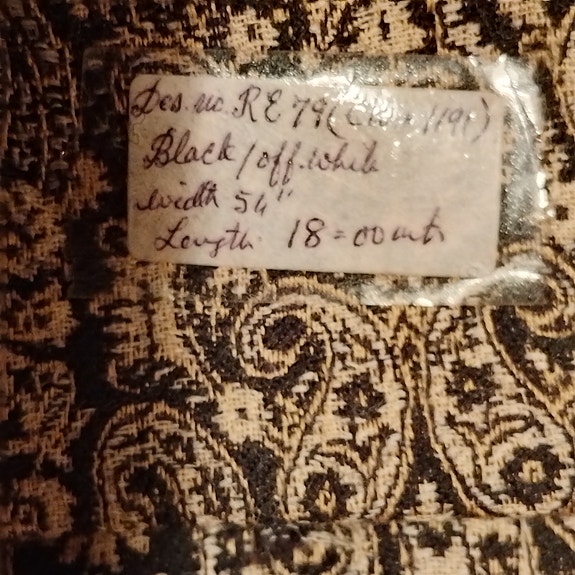 Des. no. RE 79 (
Black / off. white
width 54"
Length. 18=00 mtr